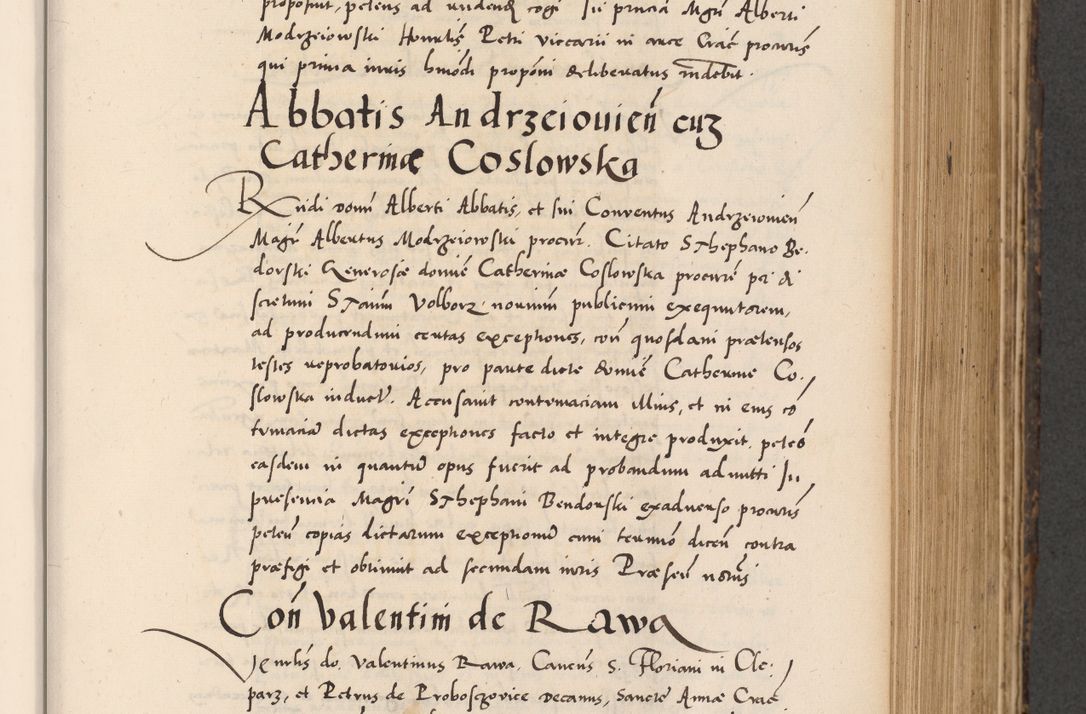 proposuit, petens ad videnď cogi In pñcia Mgrī Alberti
Modrzeiowski Honũlis Petri viccarii in arce Crac̃ procuris
qui prima iuris hmōdi propōni deliberatus indebit.
Abbatis Andrzeiouien̄ cuȝ
Catherinæ Coslowska
Rñdi domī Alberti Abbatis, et sui Conventus Andrzeiouien̄
Magr̄ Albertus Modrzeiowski procur̄. Citato SThephano Be.
dorski Generosæ domie Catherinæ Coslowska procure per di
scretum STanim̄ Volborz notarium publicum exequutorem,
ad producendum certas exceptiones, con̄ quosdam prætensos
testes reprobatorios, pro parte dicte domie Catherine Co/
slowska inductū. Accusauit contumaciam illius, et in eius cō
tumaciā dictas exceptiones facto et integre produxit, petēs
easdem in quantū opus fuerit ad probandum admitti In
presencia Magri SThephani Bendorski exaduerso procuris
peteñ copias dictarum exceptionū cum termīo diceñ contra
præfigi et obtinuit ad secundam iuris Præseñ notarijs
Con̄ Valentini de Rawa
Valentinus Rawa, Canc̃us S. Floriani in Cle/
parz, et Petrus de Proboszovice Decanus, Sanctæ Annæ Crac̃